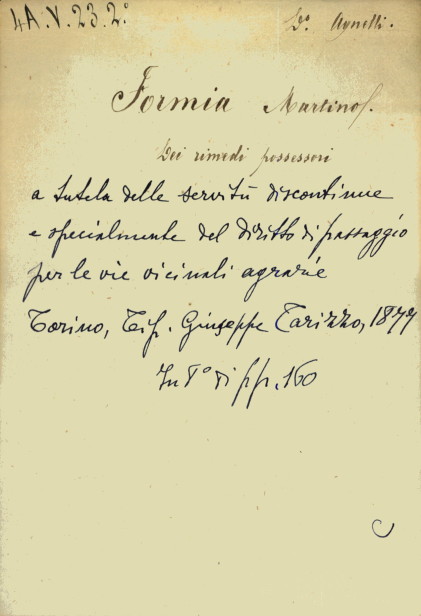 4A.V.23.2°
Do. Agnelli.
Formia Martino.
Dei rimedi possessori
a tutela delle servitù discontinue
e specialmente del diritto di passaggio
per le vie vicinali agrarie
Torino, Tip. Giuseppe Tarizzo, 1877
In 8° di pp. 160
C